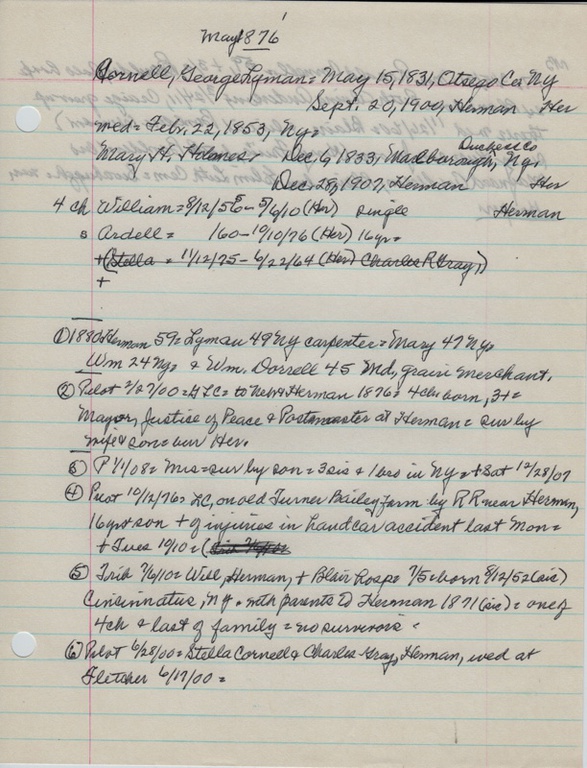 1
May 1876
Cornell, George Lyman = May 15, 1831, Otsego Co. NY
Sept. 20, 1900, Herman Her
med = Febr. 22, 1853, Ny =
Dutchess Co
Mary H. Holmes. Dec. 6, 1833, Marlborough, Ny.
Dec 28, 1907, Herman Her
4 ch William = 8/12/56 - 5/6/10 (Her) single Herman
s Ardell = 160 - 10/10/76 (Her) 16yr =
+ (Stella = 11/12/75 - 6/22/64 (Her) Charles R Gray,)
+
① 1880 Herman 59 = Lyman 49 NY carpenter = Mary 47 Ny.
Wm 24 Ny = & Wm. Dorrell 45 Md, grain merchant.
② Pilot 9/27/00 = GLC = to Neb & Herman 1876 = 4 ch born, 3+ =
Mayor, Justice of Peace & Postmaster at Herman = sur by
wife & son = bur Her.
③ P 1/1/08 = Mrs = sur by son = 3 sis & 1 bro in Ny = + Sat 12/28/07
④ Pilot 10/12/76 = LC, on old Turner Bailey farm by RR near Herman,
16yr son + of injuries in handcar accident last Mon =
+ Tues 10/10 = (
⑤ Trib 7/6/10 = Will, Herman, + Blair hosp = 7/5 = born 8/12/52 (sic)
Cincinnatus, NY = with parents to Herman 1871 (sic) = one of
4 ch & last of family = no survivors =
⑥ Pilot 6/28/00 = Stella Cornell & Charles Gray, Herman, wed at
Fletcher 6/17/00 =